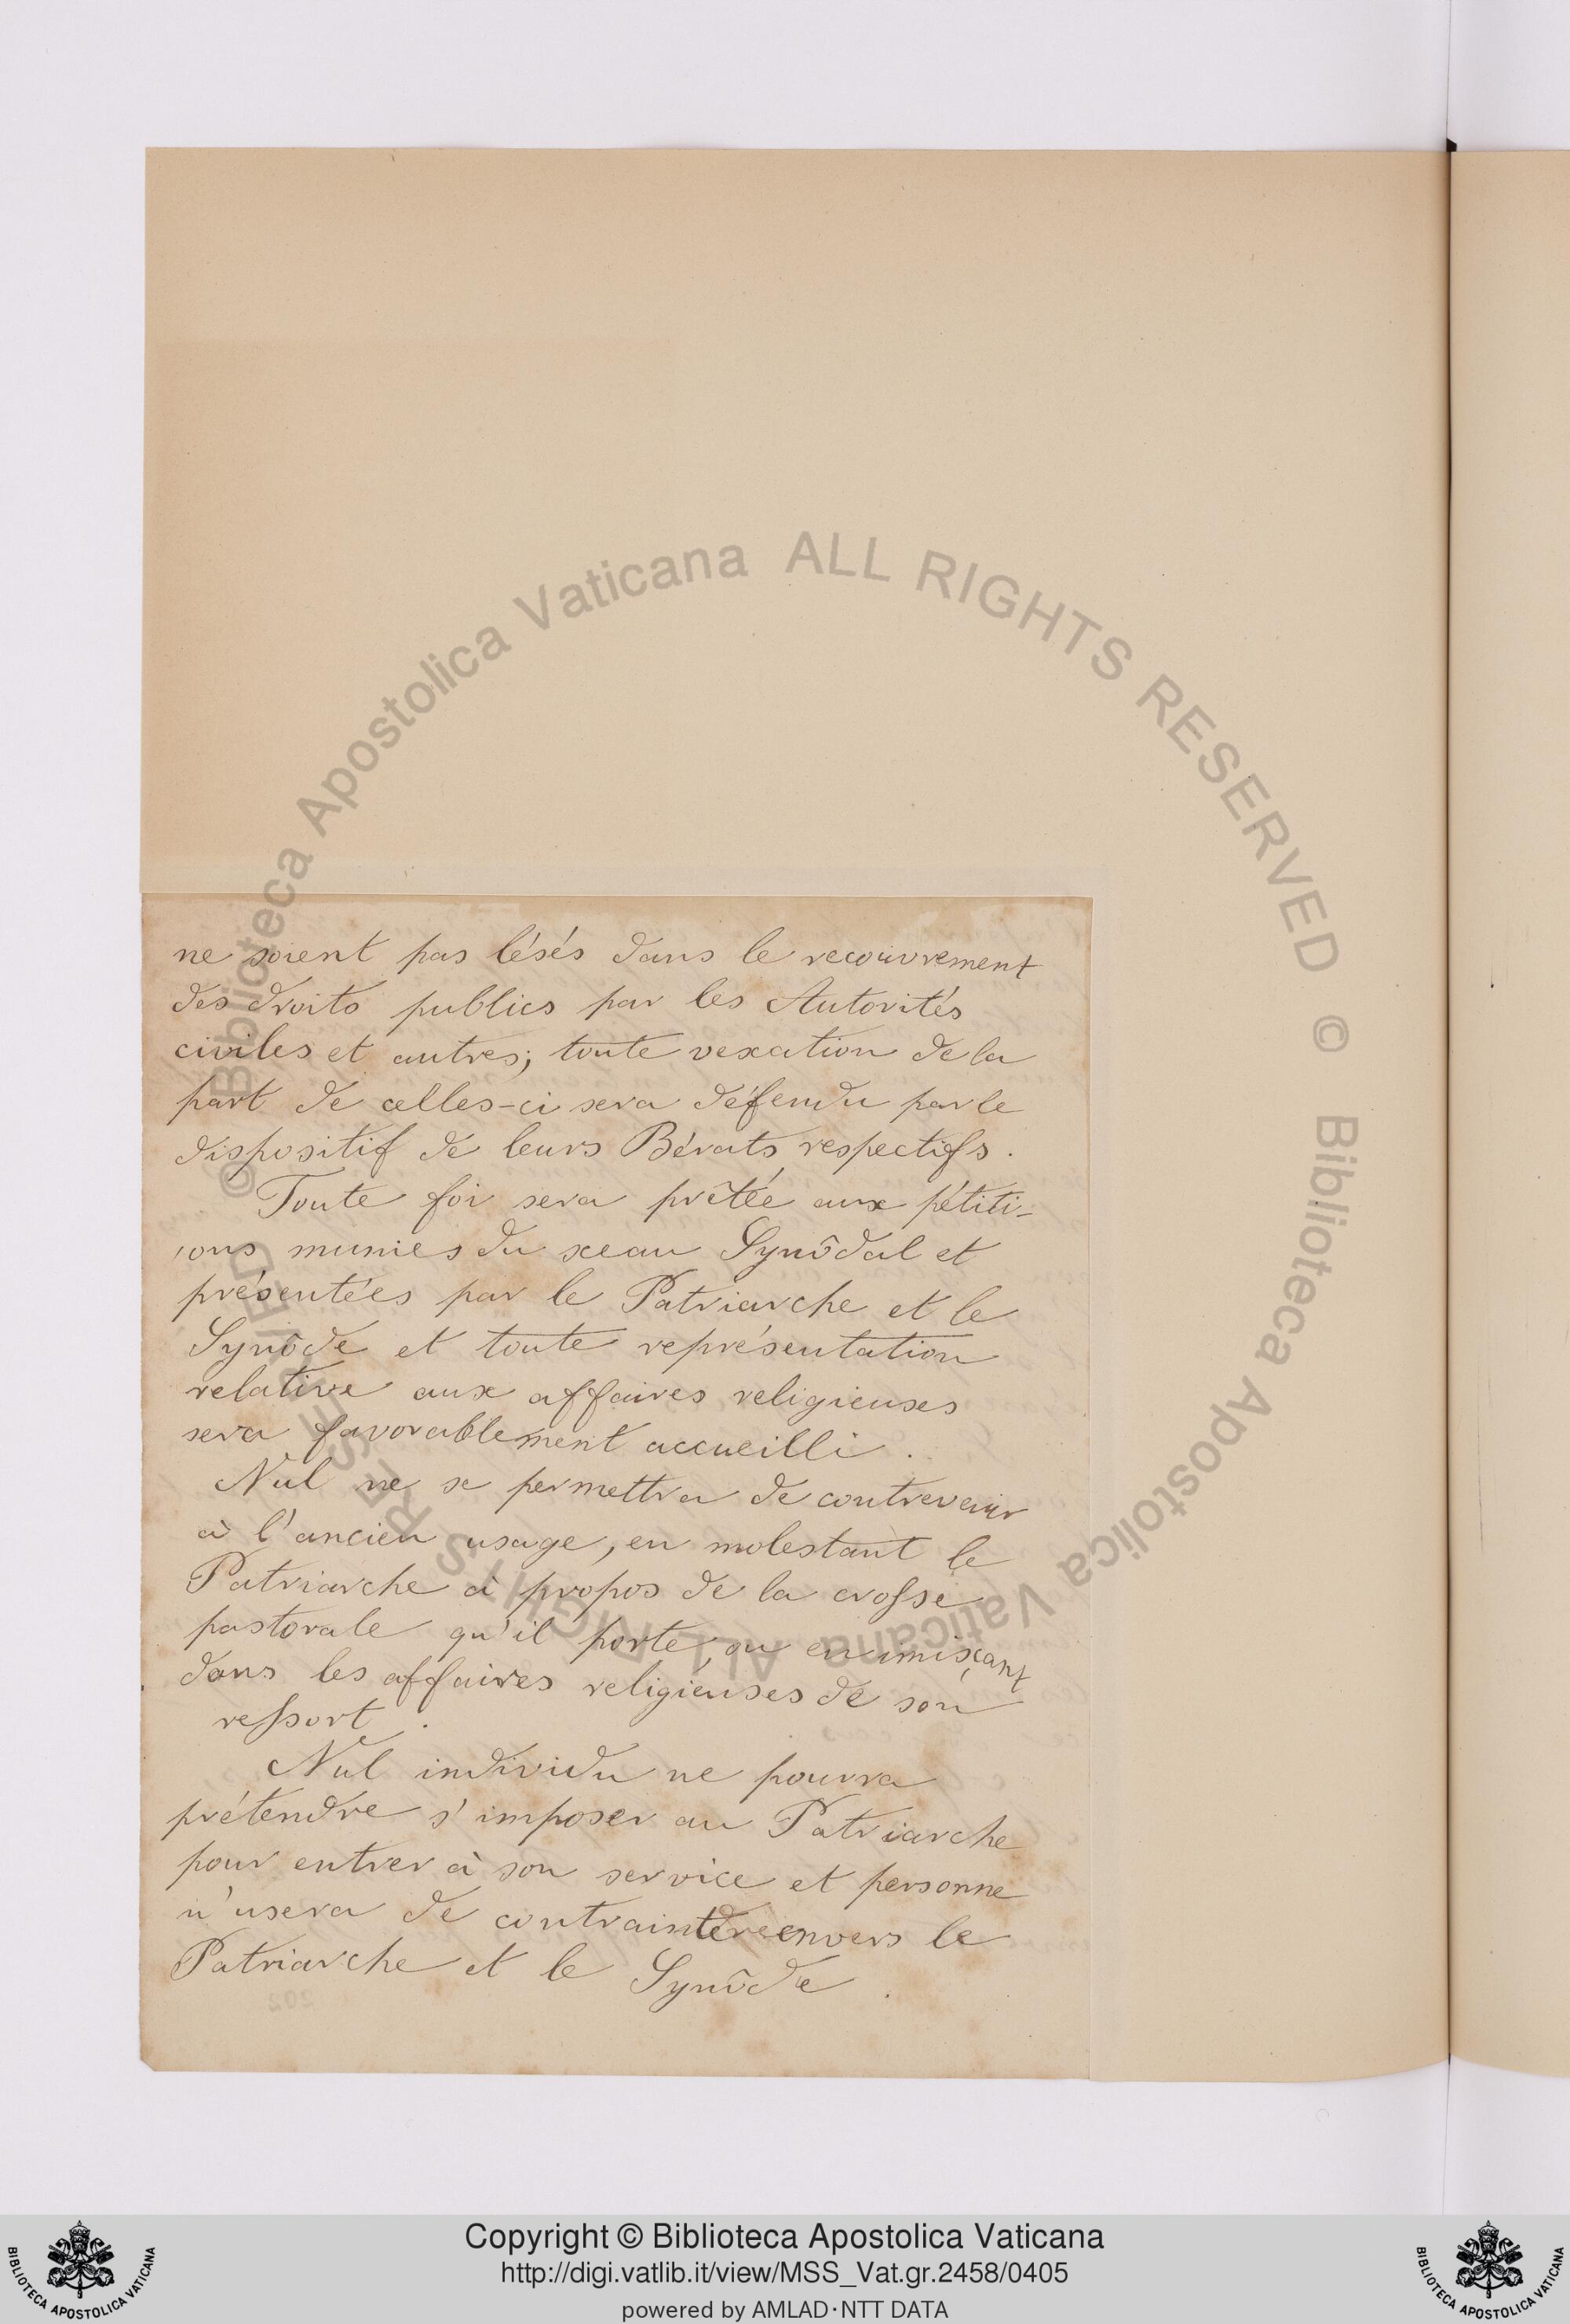 ne soient pas lésés dans le recouvrement
des droits publics par les Autorités
civiles et autres; toute vexation de la
part de celles-ci sera défendu par le
dispositif de leurs Bérats respectifs.
Toute foi sera prêtée aux pétiti-
ions munies du sceau Synôdal et
présentées par le Patriarche et le
Synôde et toute représentation
relative aux affaires religieuses
sera favorablement accueilli.
Nul ne se permettra de contrevenir
à l'ancien usage, en molestant le
Patriarche à propos de la crosse
pastorale qu'il porte, ou en imisçant
dans les affaires religieuses de son
ressort.
Nul individu ne pourra
prétendre s'imposer au Patriarche
pour entrer à son service et personne
n'usera de envers le
Patriarche et le Synôde.
© Biblioteca Apostolica Vaticana ALL RIGHTS RESERVED © Biblioteca Apostolica Vaticana ALL RIGHTS RESERVED
BIBLIOTECA APOSTOLICA VATICANA
Copyright © Biblioteca Apostolica Vaticana
http://digi.vatlib.it/view/MSS_Vat.gr.2458/0405
powered by AMLAD·NTT DATA
BIBLIOTECA APOSTOLICA VATICANA